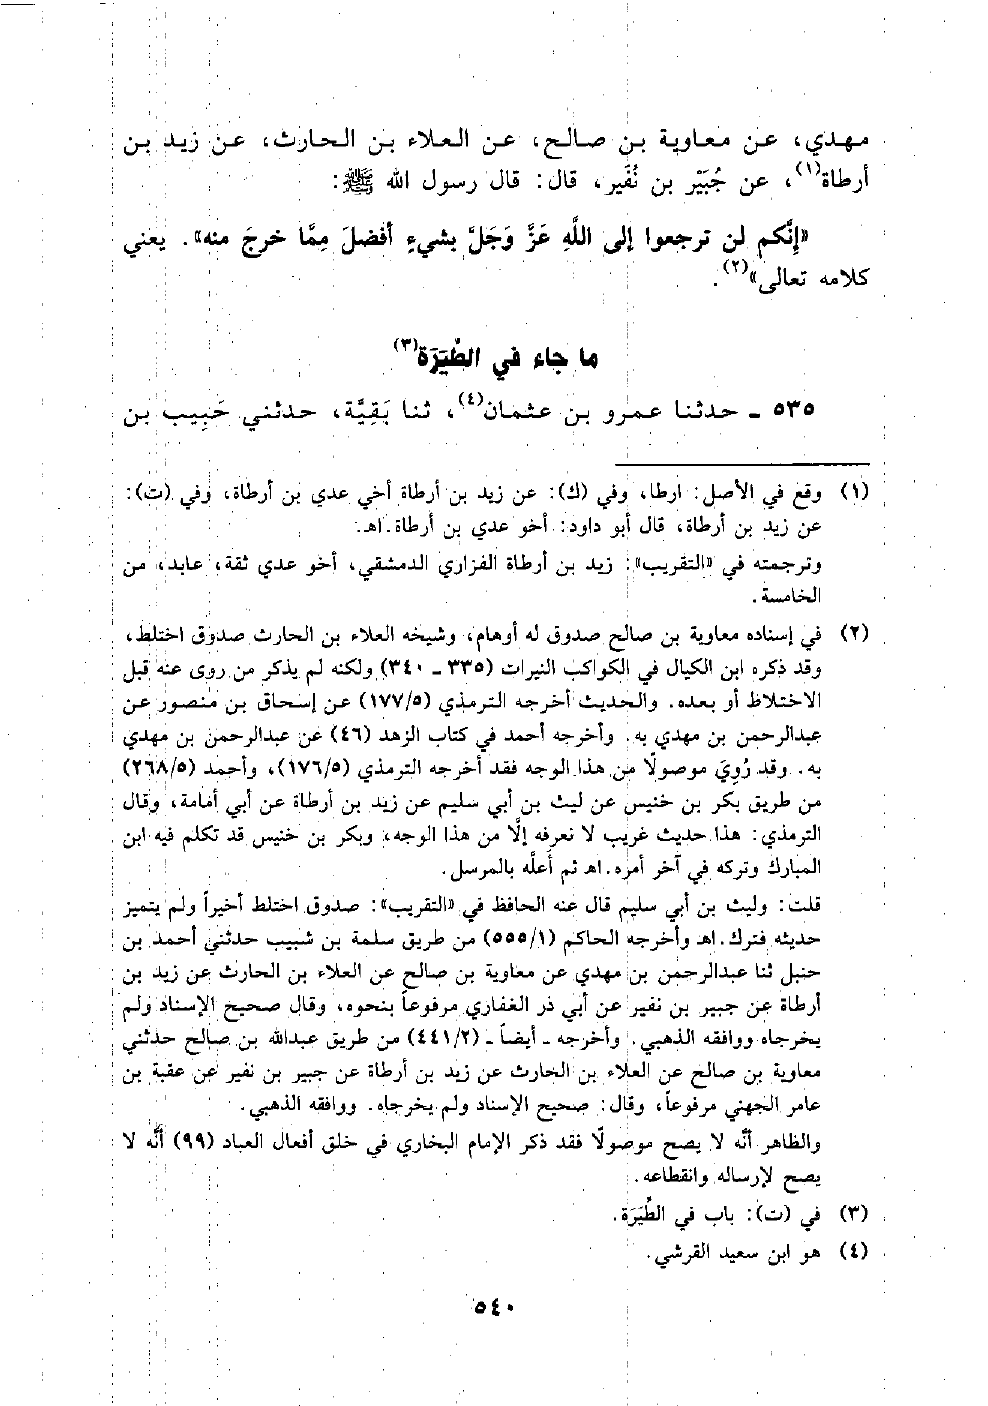 مهدي، عن معاوية بن صالح، عن العلاء بن الحارث، عن زيد بن
أرطاة(١)، عن جُبَيْر بن نُفَير، قال: قال رسول الله ﷺ:
«إِنَّكم لن ترجعوا إلى اللَّهِ عَزَّ وَجَلَّ بشيءٍ أفضلَ مِمَّا خرجَ منه». يعني
كلامه تعالى»(٢).
ما جاء في الطِّيَرَة(٣)
٥٣٥ ـ حدثنا عمرو بن عثمان(٤)، ثنا بَقِيَّة، حدثني حَبِيب بن
(١) وقع في الأصل: ارطا، وفي (ك): عن زيد بن أرطاة أخي عدي بن أرطاة، وفي (ت):
عن زيد بن أرطاة، قال أبو داود: أخو عدي بن أرطاة.اهـ.
وترجمته في «التقريب»: زيد بن أرطاة الفزاري الدمشقي، أخو عدي ثقة، عابد، من
الخامسة.
(٢) في إسناده معاوية بن صالح صدوق له أوهام، وشيخه العلاء بن الحارث صدوق اختلط،
وقد ذكره ابن الكيال في الكواكب النيرات (٣٣٥ ـ ٣٤٠) ولكنه لم يذكر من روى عنه قبل
الاختلاظ أو بعده. والحديث أخرجه الترمذي (١٧٧/٥) عن إسحاق بن منصور عن
عبدالرحمن بن مهدي به. وأخرجه أحمد في كتاب الزهد (٤٦) عن عبدالرحمن بن مهدي
به. وقد رُوِيَ موصولًا من هذا الوجه فقد أخرجه الترمذي (١٧٦/٥)، وأحمد (٢٦٨/٥)
من طريق بكر بن خنيس عن ليث بن أبي سليم عن زيد بن أرطاة عن أبي أمامة، وقال
الترمذي: هذا حديث غريب لا نعرفه إلَّا من هذا الوجه، وبكر بن خنيس قد تكلم فيه ابن
المبارك وتركه في آخر أمره.اهـ ثم أعلَّه بالمرسل.
قلت: وليث بن أبي سليم قال عنه الحافظ في «التقريب»: صدوق اختلط أخيراً ولم يتميز
حديثه فترك.اهـ وأخرجه الحاكم (٥٥٥/١) من طريق سلمة بن شبيب حدثني أحمد بن
حنبل ثنا عبدالرحمن بن مهدي عن معاوية بن صالح عن العلاء بن الحارث عن زيد بن
أرطاة عن جبير بن نفير عن أبي ذر الغفاري مرفوعاً بنحوه، وقال صحيح الإسناد ولم
يخرجاه ووافقه الذهبي. وأخرجه ـ أيضاً ـ (٤٤١/٢) من طريق عبدالله بن صالح حدثني
معاوية بن صالح عن العلاء بن الحارث عن زيد بن أرطاة عن جبير بن نفير عن عقبة بن
عامر الجهني مرفوعاً، وقال: صحيح الإسناد ولم يخرجاه. ووافقه الذهبي.
والظاهر أنَّه لا يصح موصولًا فقد ذكر الإمام البخاري في خلق أفعال العباد (٩٩) أنَّه لا
يصح لإرساله وانقطاعه.
(٣) في (ت): باب في الطِّيَرَة.
(٤) هو ابن سعيد القرشي.
٥٤٠